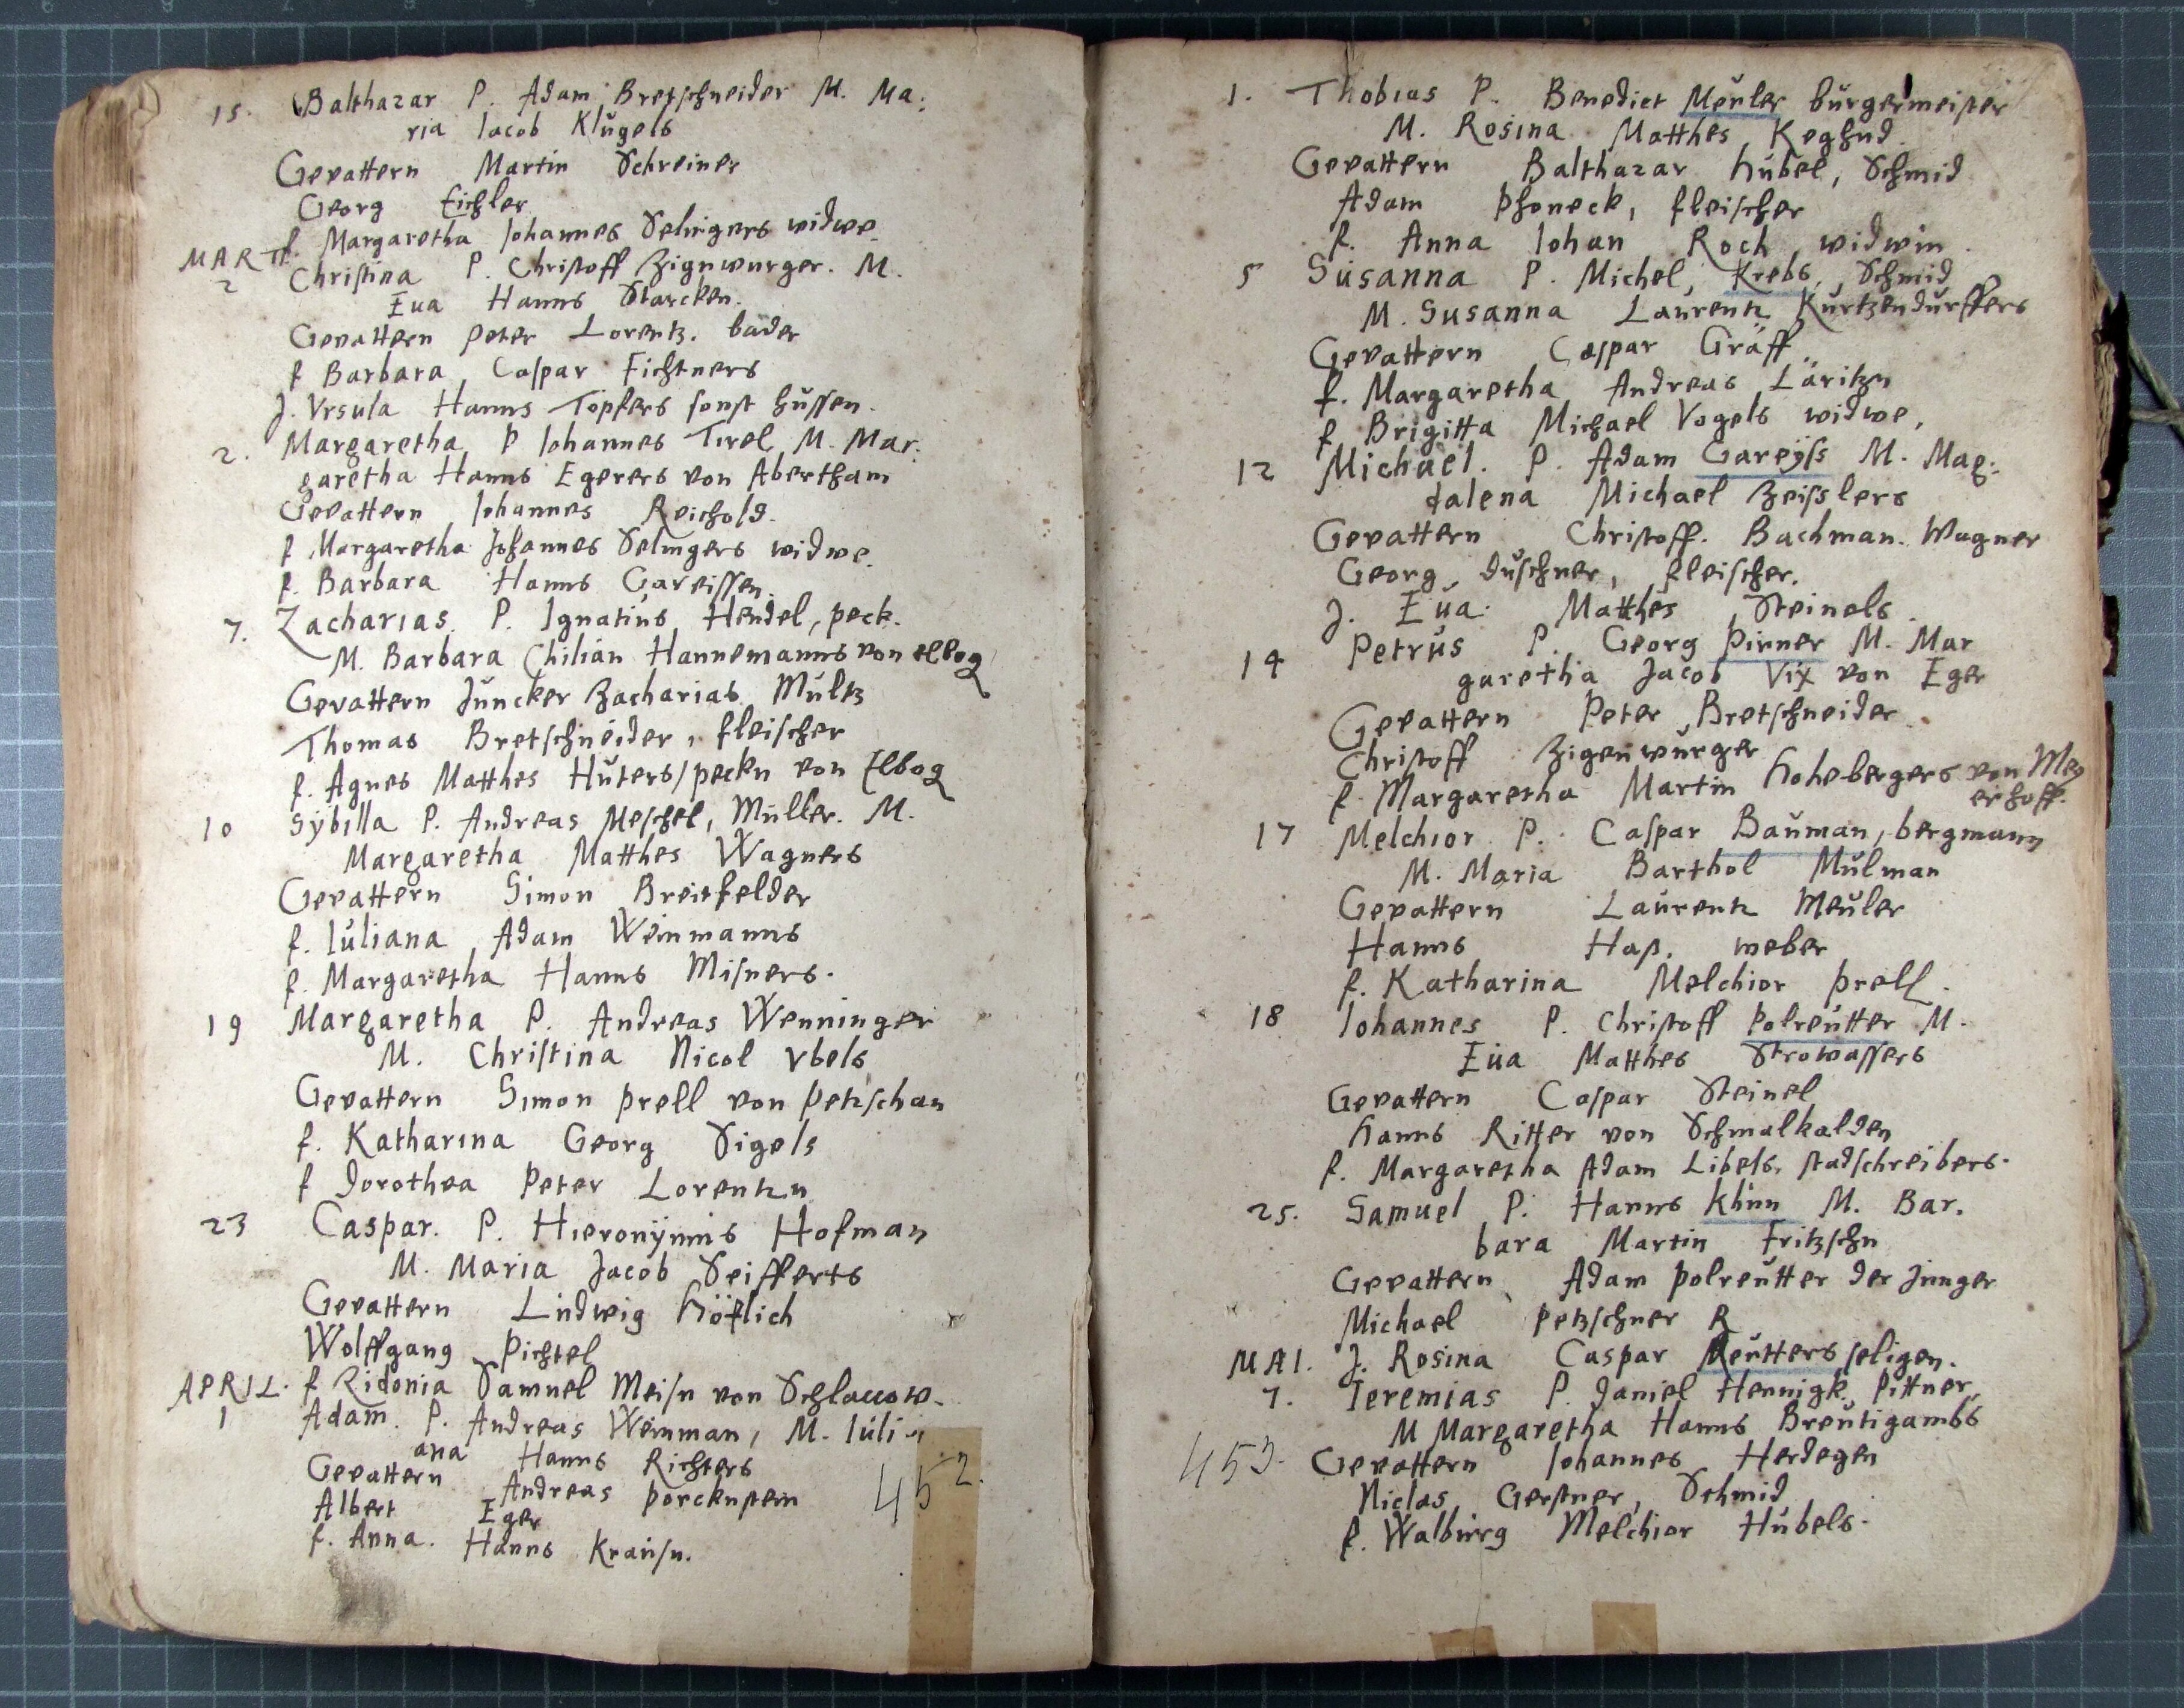 15. Balthazar P. Adam Bretschneider M. Ma:
ria Iacob Klügels
Gevattern Martin Schreiner
Georg Eichler
f. Margaretha Iohannes Selingers widwe.
MARTII.
2 Christina P. Christoff Zignwurger. M.
Eua Hanns Starcken.
Gevattern Peter Lorentz. bader
f Barbara Caspar Fichtners
J. Vrsula Hanns Töpfers sonst hussen.
2. Margaretha P Iohannes Tirel M. Mar:
garetha Hanns Egerers von Abertham
Gevattern Iohannes Reichold.
f Margaretha Johannes Selingers widwe.
f. Barbara Hanns Gareissen.
7. Zacharias. P. Ignatius Hendel, peck.
M. Barbara Chilian Hannemanns von elbog
Gevattern Juncker Zacharias Mültz
Thomas Bretschneider, fleischer
f. Agnes Matthes Hüters/peckn von Elbog
10 Sÿbilla P. Andreas Meschel, Müller. M.
Margaretha Matthes Wagners
Gevattern Simon Breitfelder
f. Iuliana Adam Weinmanns
f. Margaretha Hanns Misners.
19 Margaretha P. Andreas Wenninger
M. Christina Nicol Vbels
Gevattern Simon Prell von Petzschau
f. Katharina Georg Sigels
f Dorothea Peter Lorentzn
23 Caspar. P. Hieronÿmus Hofman
M. Maria Jacob Seifferts
Gevattern Ludwig Höflich
Wolffgang Pichtel
f Ridonia Samuel Meisn von Schlaccow.
APRIL.
1 Adam. P. Andreas Weinman, M. Iuli
ana Hanns Richters
Gevattern Andreas Porcknstein
Albert Eger
f. Anna. Hanns Krausn.
452.
1. Thobias P. Benedict Meuler bürgermeister
M. Rosina Matthes Keghnd.
Gevattern Balthazar Hübel, Schmid
Adam Phoneck, fleischer
f. Anna Iohan Roch widwin.
5 Susanna P. Michel Krebs, Schmid
M. Susanna Laurentz Kurtzendürffers
Gevattern Caspar Gräff
f. Margaretha Andreas Läritzn
f Brigitta Michael Vogels widwe,
12 Michael. P. Adam Gareÿss M. Mag:
dalena Michael Zeisslers
Gevattern Christoff. Bachman. Wagner
Georg Duschner, fleischer.
J. Eua. Matthes Steinels.
14 Petrus P. Georg Pirner M. Mar
garetha Jacob Vix von Eger
Gevattern Peter Bretschneider
Christoff Zigenwurger
f. Margaretha Martin Hohebergers von Mey
erhoff.
17 Melchior P. Caspar Bauman, bergmann
M. Maria Barthol Mülman
Gevattern Laurentz Meuler
Hanns Has. weber
f. Katharina Melchior Prell.
18 Iohannes P. Christoff Polreutter M.
Eua Matthes Strowassers
Gevattern Caspar Steinel
Hanns Ritter von Schmalkalden
f. Margaretha Adam Libels, stadschreibers.
25. Samuel P. Hanns Khun M. Bar.
bara Martin Fritzschn
Gevattern Adam Polreutter der Junger
Michael Petzschner R
J. Rosina Caspar Reutters seligen.
MAI.
7. Ieremias P. Daniel Hennigk, Pittner,
M Margaretha Hanns Breutigambs
Gevattern Iohannes Herdegen
Niclas Gerstner, Schmid
f. Walburg Melchior Hübels.
453.